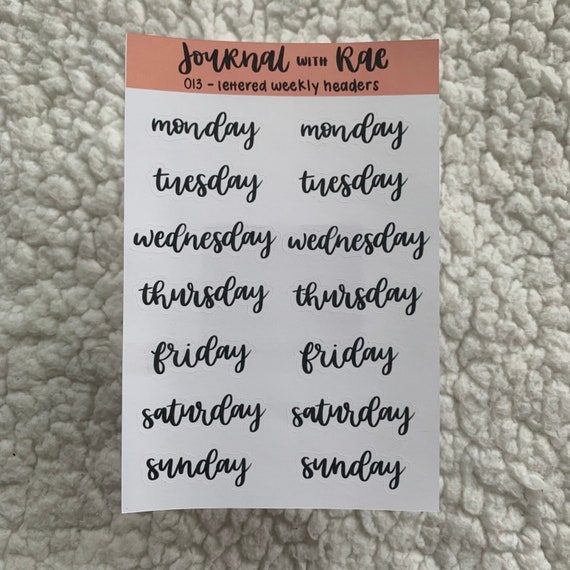 Journal with Rae
013 - lettered weekly headers
monday monday
tuesday tuesday
wednesday wednesday
thursday thursday
friday friday
saturday saturday
sunday sunday